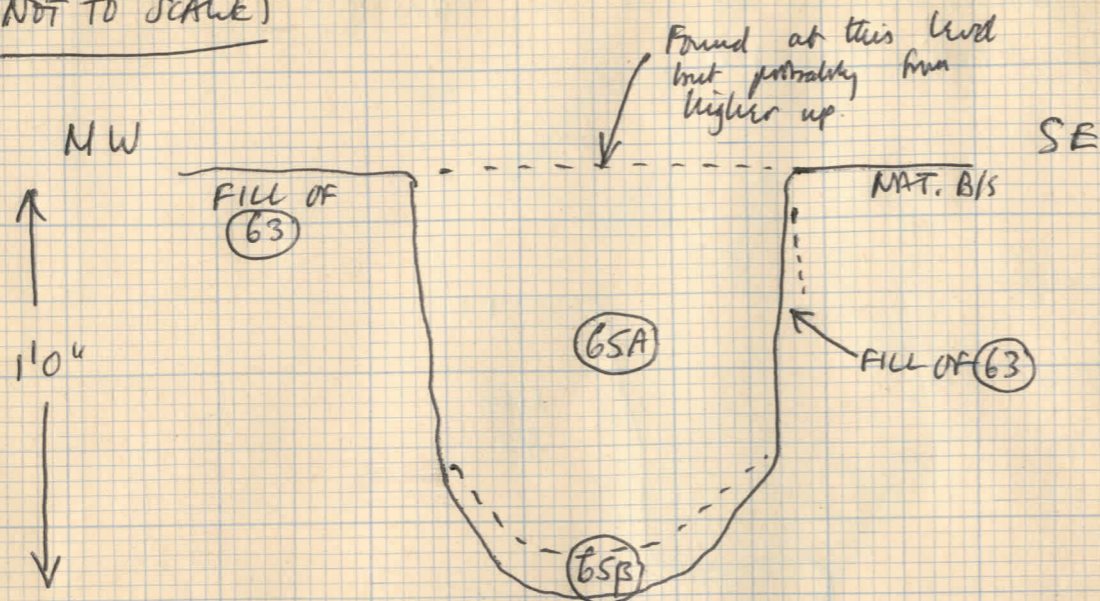 NOT TO SCALE)
Found at this level
but probably from
higher up.
NW
SE
FILL OF
63
NAT. B/S
65A
1'0"
FILL OF 63
65B